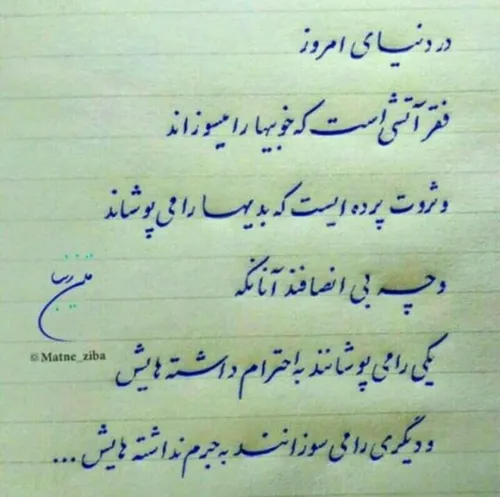 در دنیای امروز
فقر آتشی است که خوبیها را میسوزاند
و ثروت پرده ایست که بدیها را می پوشاند
و چه بی انصافند آنانکه
متن زیبا
© Matne_ziba
یکی را می پوشانند به احترام داشته هایش
و دیگری را می سوزانند به جرم نداشته هایش ...